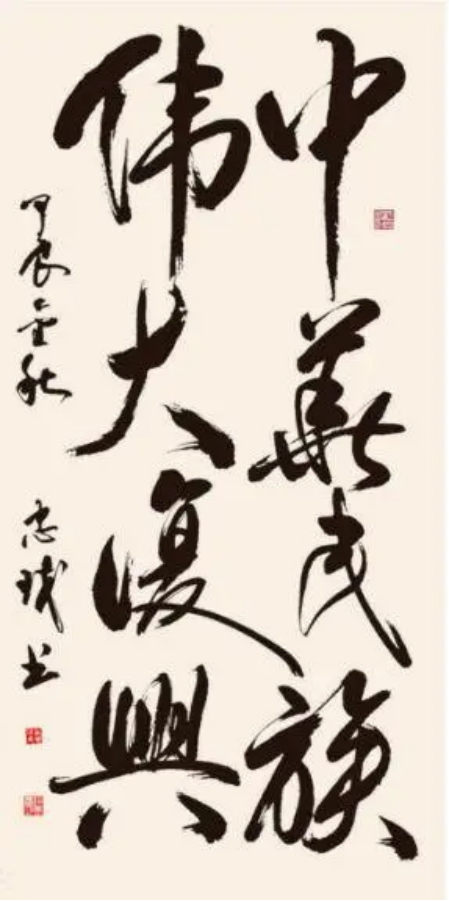 中華民族
伟大復興
甲辰金秋
志 书